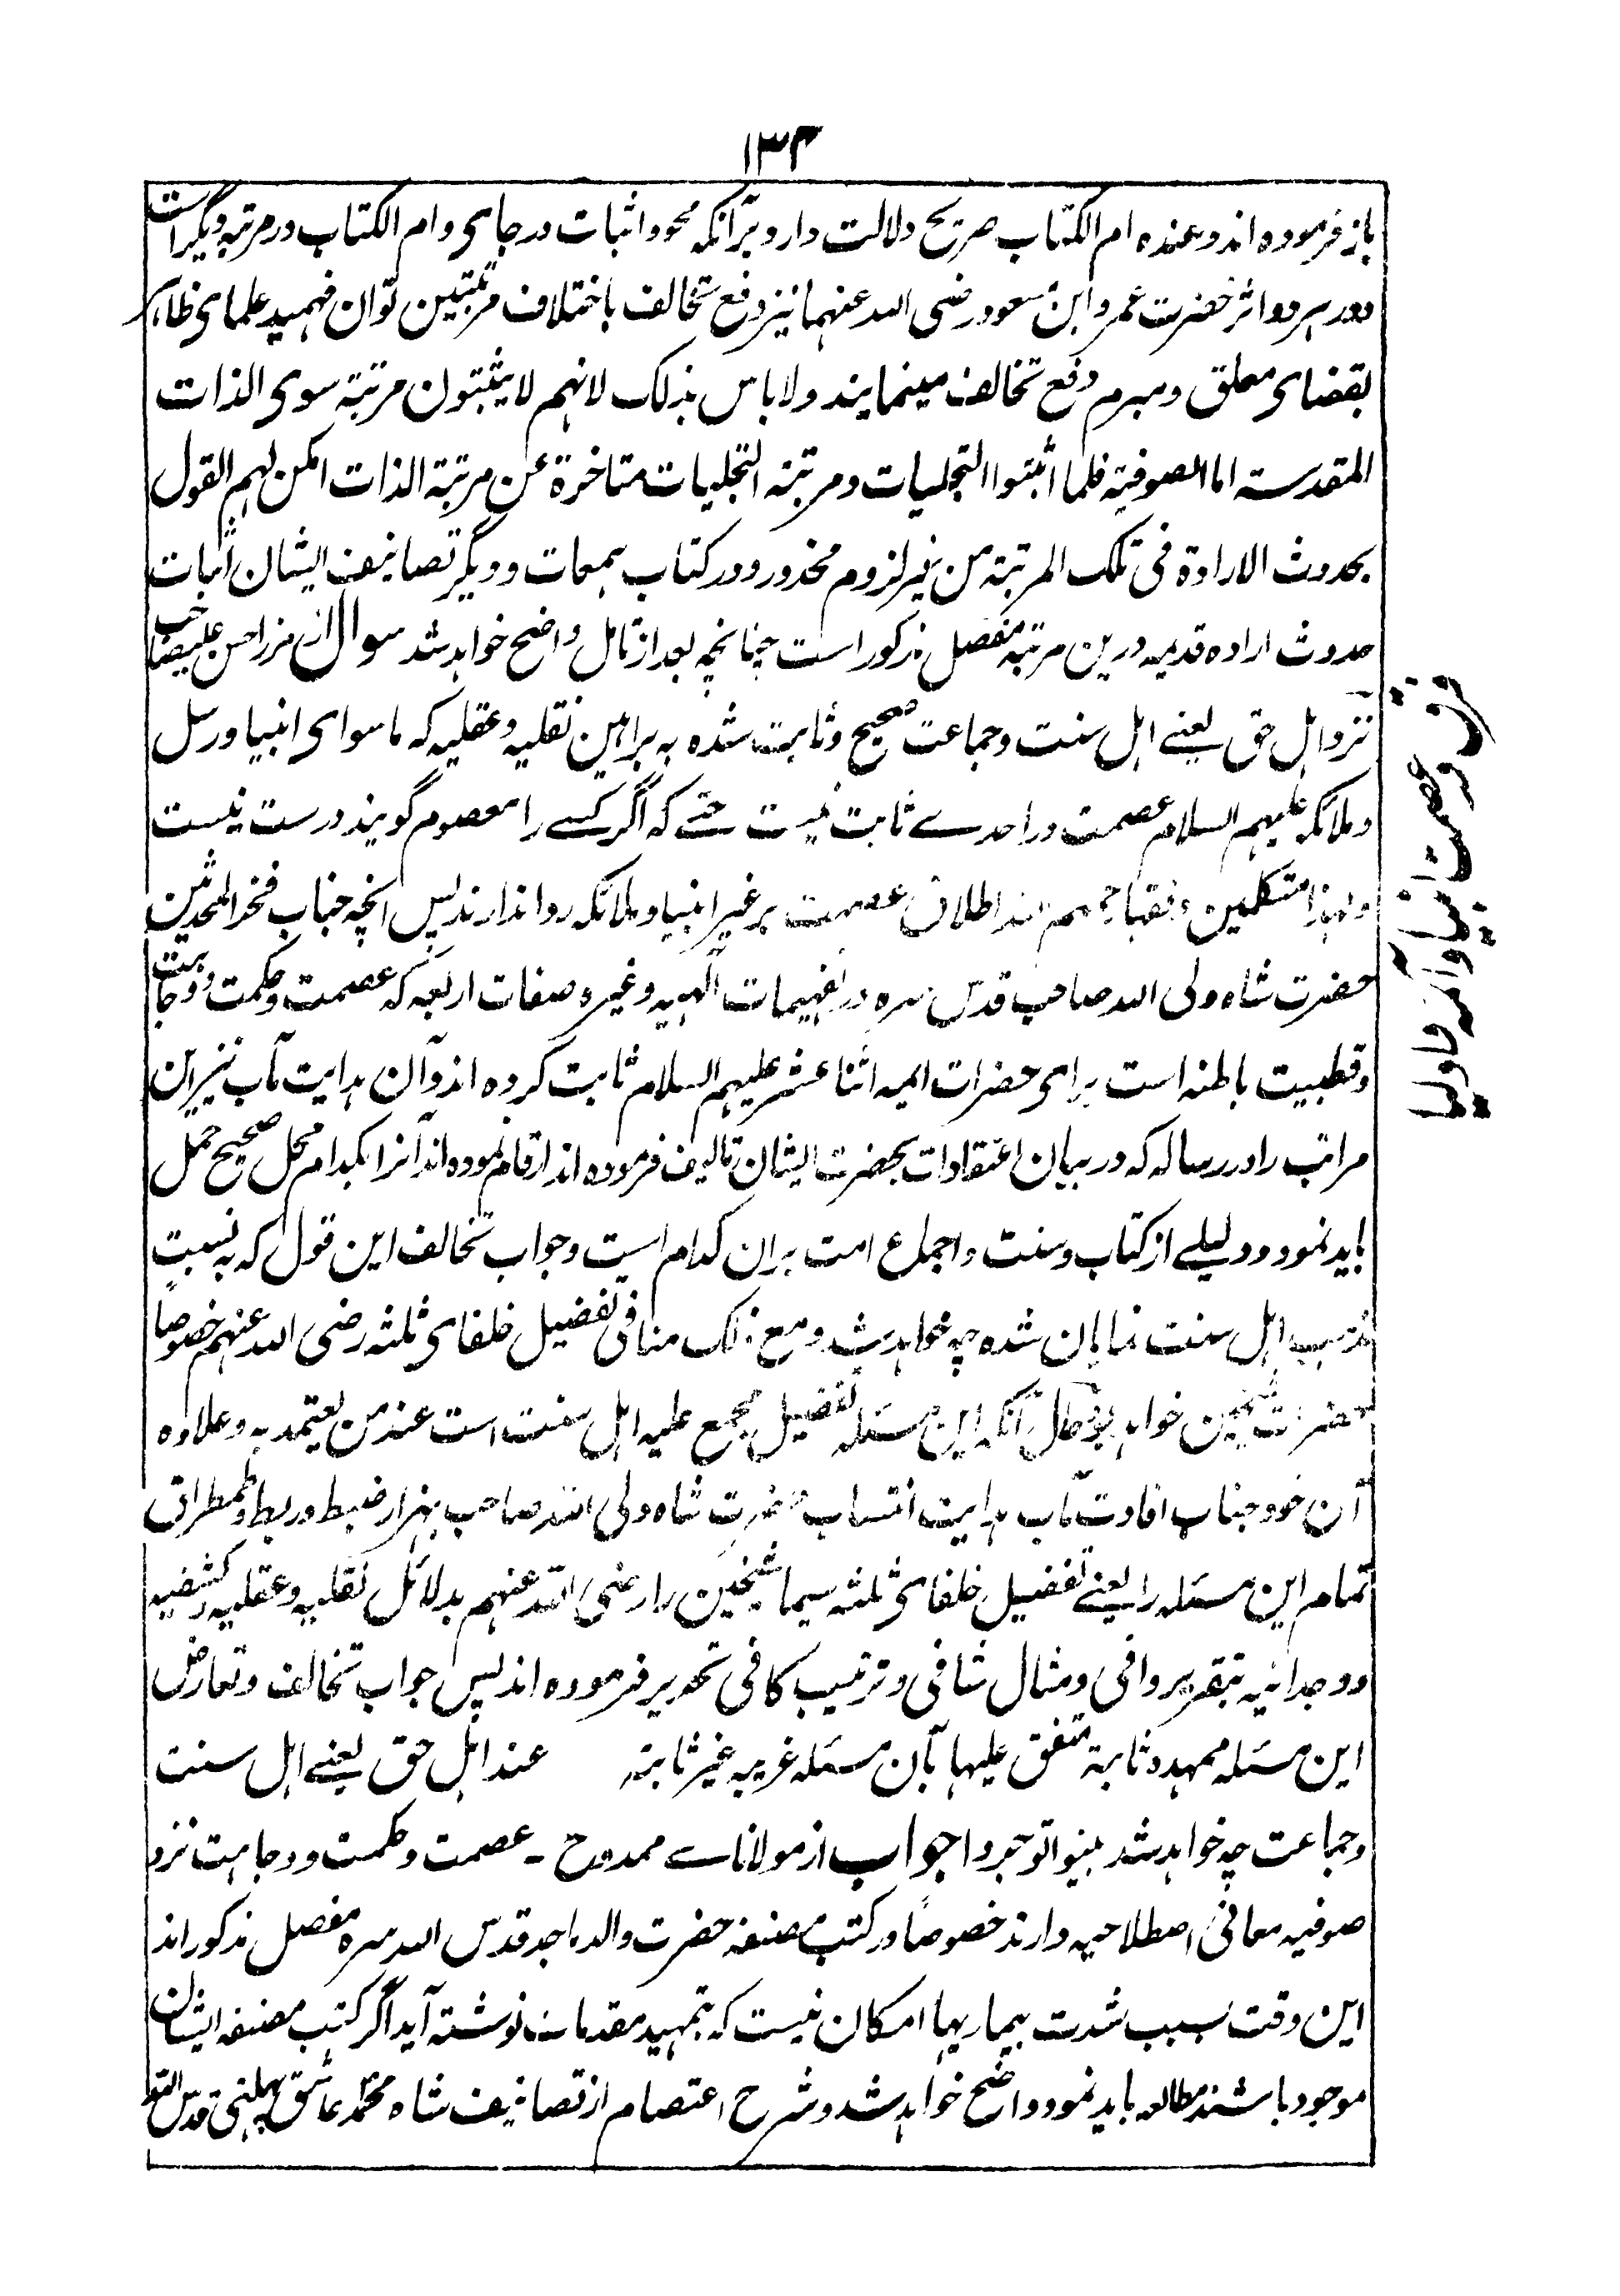 ۱۳۴
باز فرموده اند و عنده ام الکتاب صریح دلالت دارد برآنکه محو و اثبات در جای و ام الکتاب در مرتبه دیگر است
و در هر دو اثر حضرت عمر و ابن مسعود رضی الله عنهما نیز دفع تخالف باختلاف مرتبتین توان فهمید علمای ظاهر
بقضای معلق و مبرم دفع تخالف مینمایند ولا باس بذلک لانهم لا یثبتون مرتبة سوی الذات
المقدسته اما الصوفیه فلما اثبتوا التجلیات و مرتبته التجلیات متاخرة عن مرتبة الذات امکن لهم القول
بحدوث الارادة فی تلک المرتبته من غیر لزوم محذور و در کتاب همعات و دیگر تصانیف ایشان اثبات
حدوث اراده قدیمه درین مرتبه مفصل مذکور است چنانچه بعد از تامل واضح خواهد شد سوال از مرزا حسن علیصاحب
نزد اهل حق یعنے اهل سنت و جماعت صحیح و ثابت شده به براهین نقلیه و عقلیه که ما سوای انبیا و رسل
و ملائکه علیهم السلام عصمت در احدے ثابت نیست حتے که اگر کسے را معصوم گویند درست نیست
و لهذا متکلمین و فقها جمیعهم اطلاق عصمت بر غیر انبیا و ملائکه روا ندارند پس آنچه جناب فخر المحدثین
حضرت شاه ولی الله صاحب قدس سره در تفهیمات آلهیه و غیره صفات اربعه که عصمت و حکمت و وجاهت
و قطبیت باطنه است برای حضرات ایمه اثنا عشر علیهم السلام ثابت کرده اند و آن هدایت مآب نیز این
مراتب را در رساله که در بیان اعتقادات بحضرت ایشان تالیف فرموده اند ارقام نموده اند آنرا بکدام محل صحیح حمل
باید نمود و دلیلے از کتاب و سنت و اجماع امت بران کدام است و جواب تخالف این قول که به نسبت
مذهب اهل سنت نمایان شده چه خواهد شد و مع ذلک منافی تفضیل خلفای ثلثه رضی الله عنهم خصوصا
حضرت شیخین خواهد بود حال آنکه این مسئله تفضیل مجمع علیه اهل سنت است عند من یعتمد به و علاوه
آن خود جناب افادت مآب هدایت انتساب حضرت شاه ولی الله صاحب بهزار ضبط و ربط و طمطراق
تمام این مسئله را یعنے تفضیل خلفای ثلثه سیما شیخین را رضی الله عنهم بدلائل نقلیه و عقلیه و کشفیه
و وجدانیه بتقریر وافی و مثال شافی و ترتیب کافی تحریر فرموده اند پس جواب تخالف و تعارض
این مسئله ممهده ثابتة متفق علیها بآن مسئله غریبه غیر ثابته عند اهل حق یعنے اهل سنت
و جماعت چه خواهد شد بینوا توجروا جواب از مولانا سے ممدوح ـ عصمت و حکمت و وجاهت نزد
صوفیه معانی اصطلاحیه دارند خصوصاً در کتب مصنفه حضرت والد ماجد قدس الله سره مفصل مذکور اند
این وقت بسبب شدت بیماریها امکان نیست که بتمهید مقدمات نوشته آید اگر کتب مصنفه ایشان
موجود باشند مطالعه باید نمود واضح خواهد شد و شرح اعتصام از تصانیف شاه محمد عاشق پهلتی قدس الله
عصمت انبیا و ائمه و اولیا